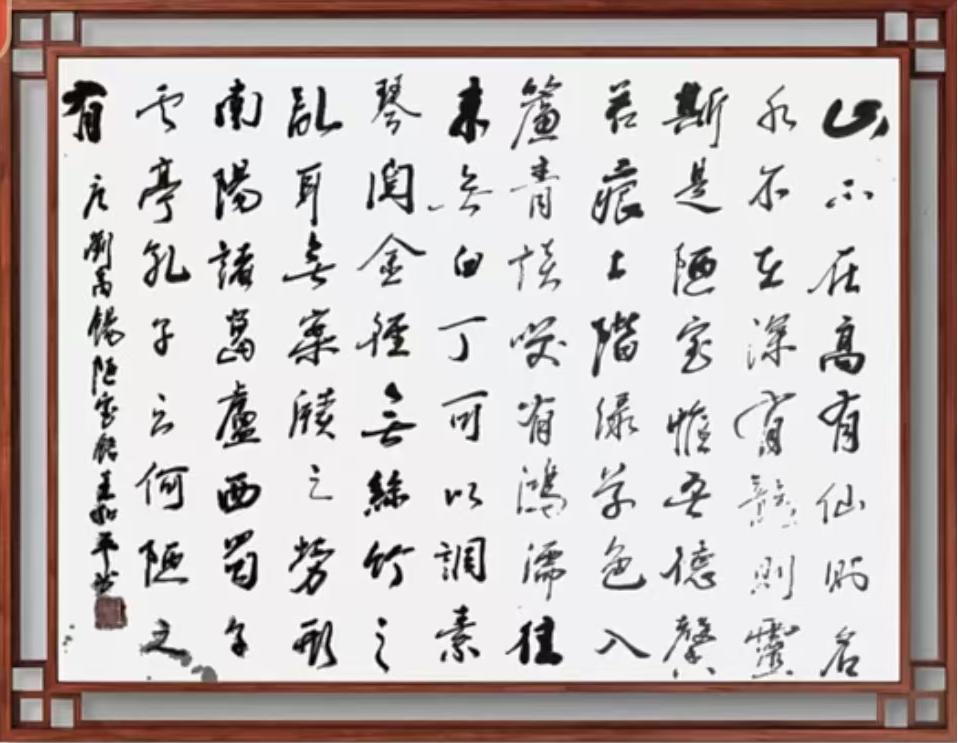 山不在高有仙則名
水不在深有龍則靈
斯是陋室惟吾德馨
苔痕上階綠草色入
簾青談咲有鴻儒往
来無白丁可以調素
琴閱金經無絲竹之
亂耳無案牘之勞形
南陽諸葛盧西蜀子
雲亭孔子云何陋之
有
唐劉禹錫陋室銘王平書